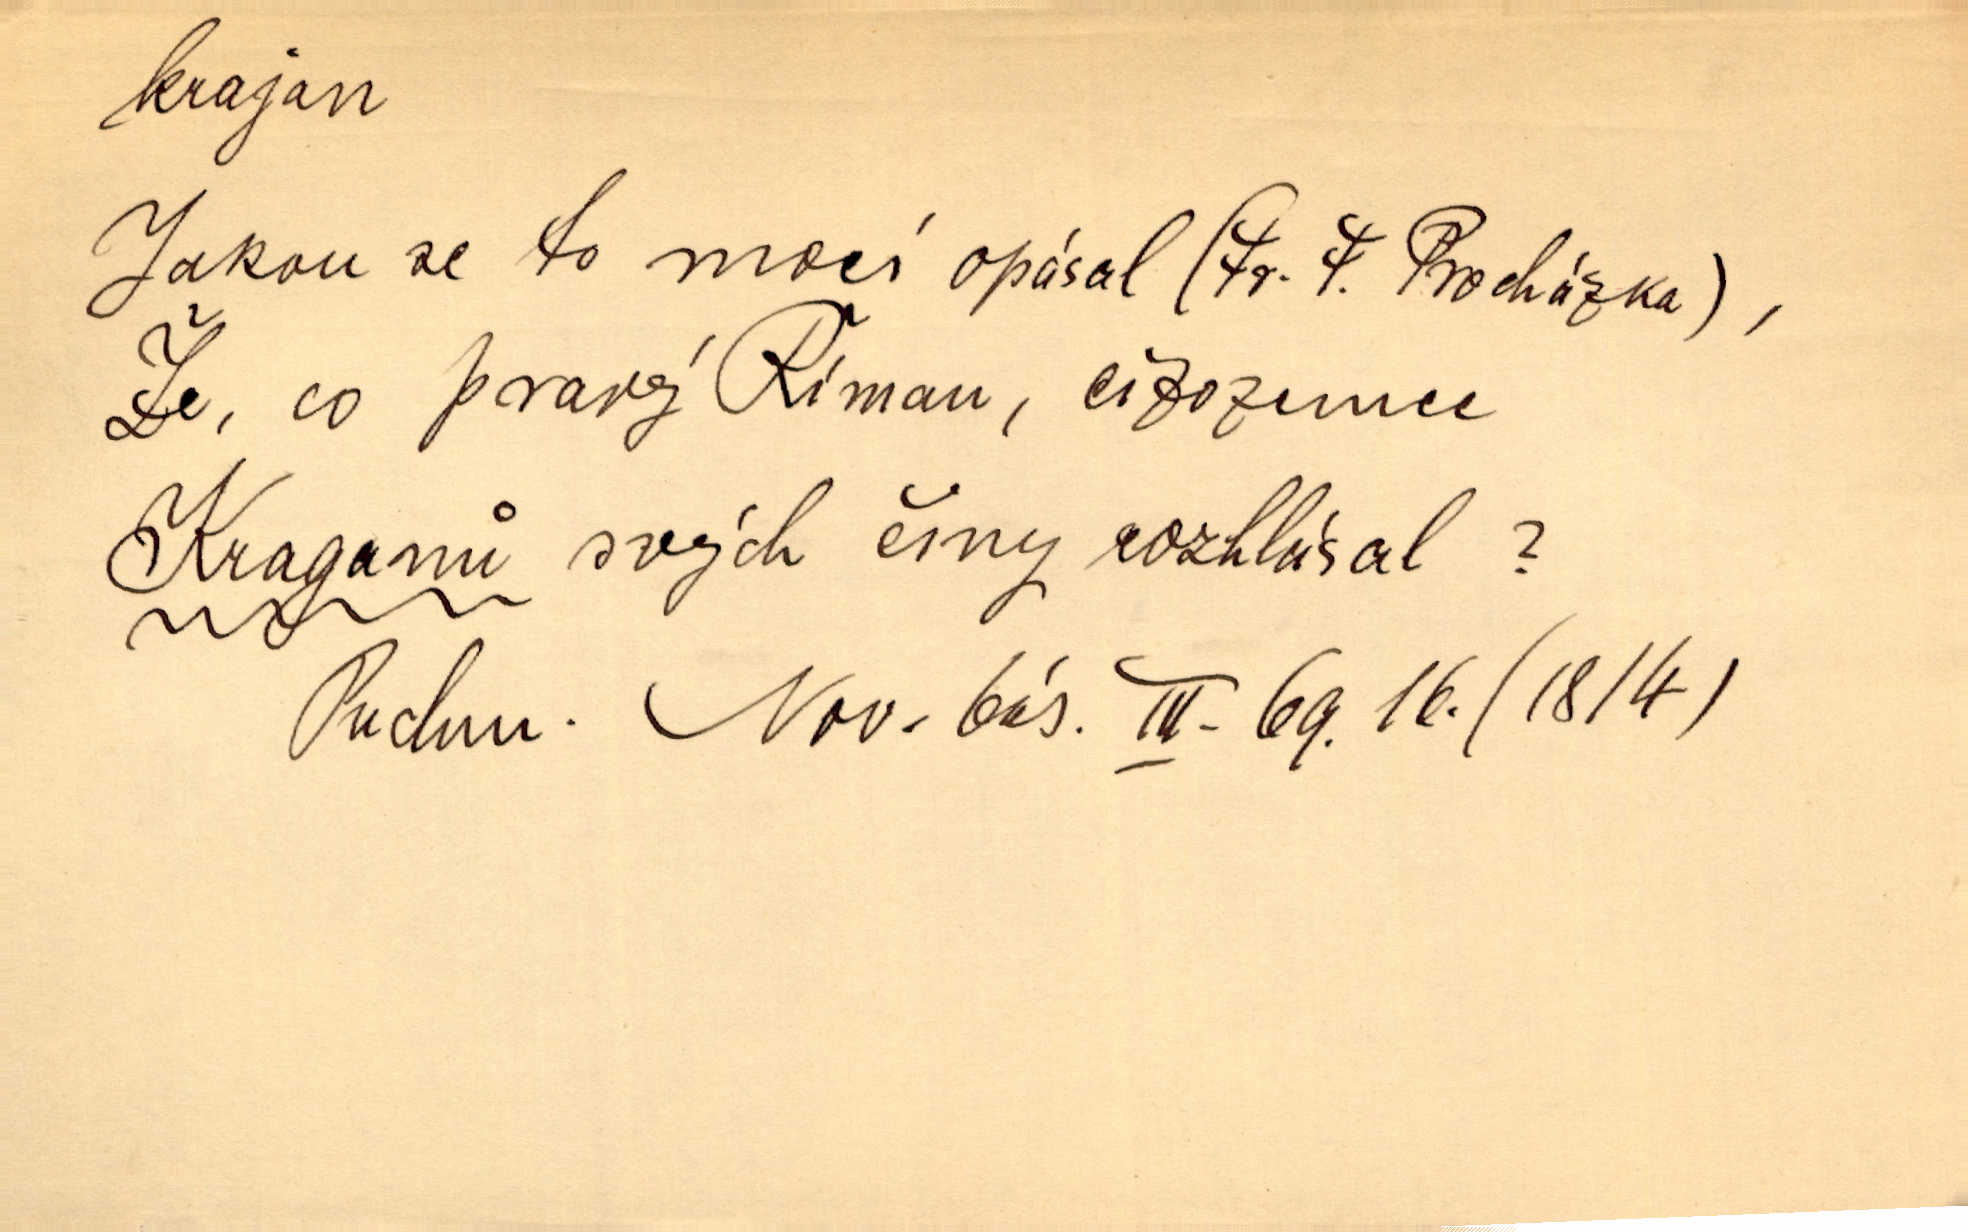 krajan
Jakou se to mocí opásal (Fr. F. Procházka),
Že, co pravý Říman, cizozemce
Kraganů svých činy rozhlásal?
Puchm. Nov. bás. III. 69. 16. (1814)